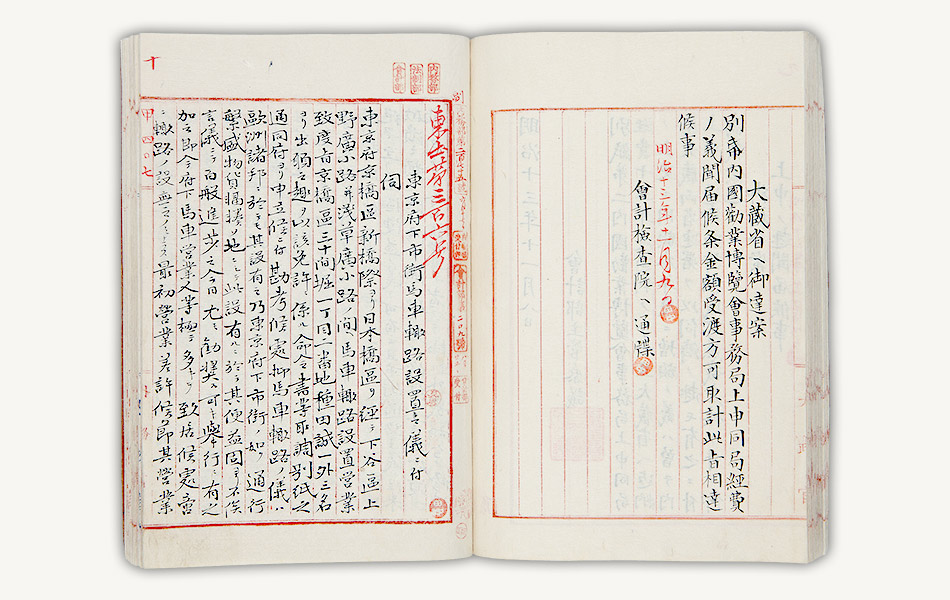 大藏省ヘ御達案
別命内國勸業博覽會事務局上申同局經費
ノ義聞届候条金額受渡方可取計此旨相達
候事
明治十三年十一月九日
會計檢査院ヘ通牒
内務部
法制部
會計部
東土第三百六号
東京府下市街馬車轍路設置之儀ニ付
伺
東京府京橋區新橋際ヨリ日本橋區ヲ經テ下谷區上
野廣小路并浅草廣小路ノ間ヘ馬車轍路設置営業
致度旨京橋區三十間堀一丁目一番地種田誠一外三名
ヨリ出願之趣ヲ以該免許
通同府ヨリ申立候ニ付勘考候處抑馬車轍路ノ儀ハ
歐洲諸邦ニ於テモ其設有之乃東京府下市街ノ如ク通行
繁盛物貨輻湊ノ地ニシテ此設有ルニ於テハ其便益固ヨリ不俟
言儀ニテ百般進歩之今日尤モ勧奨スヘキ舉行ニ有之
加之即今府下馬車営業人業極テ多キヲ致居候處
轍路ノ設無之最初營業差許候節其営業
十
甲四〇七